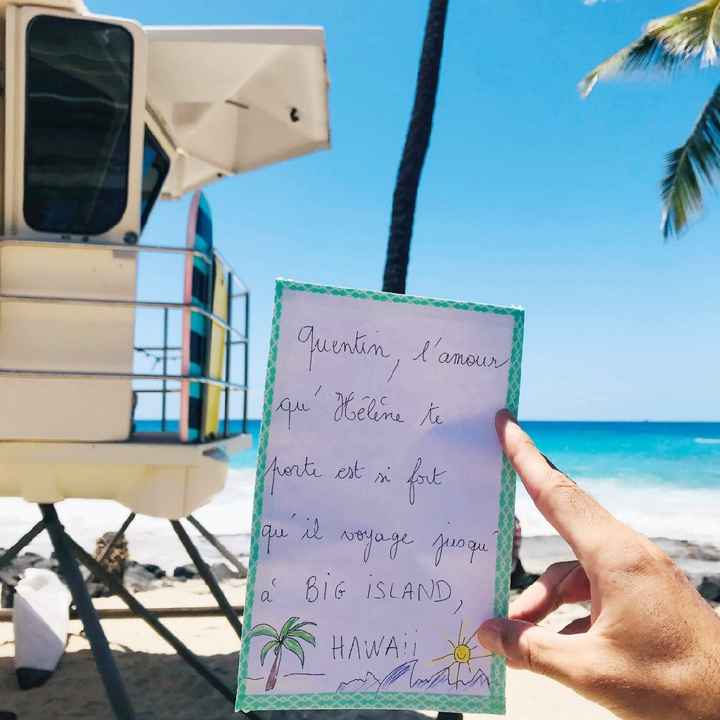 Quentin, l'amour
qu' Hélène te
porte est si fort
qu'il voyage jusqu'
à BIG iSLAND,
HAWAii